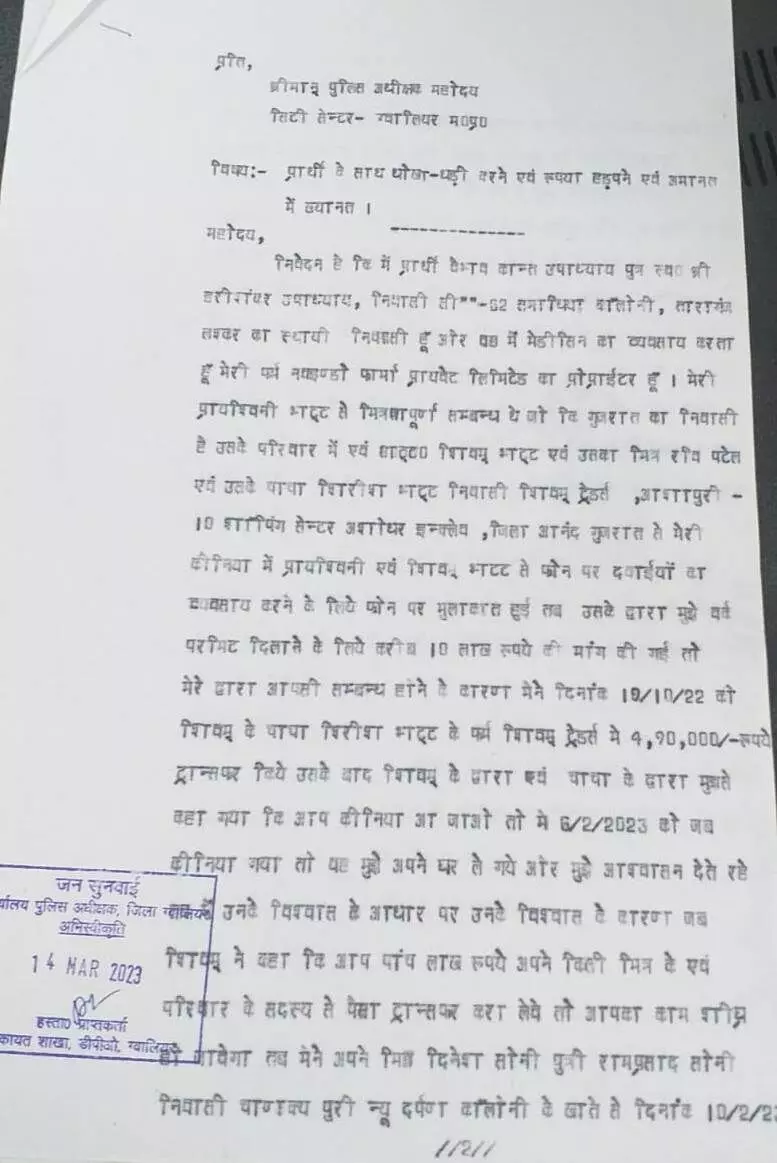 प्रति,
श्रीमान् पुलिस अधीक्षक महोदय
सिटी सेन्टर- ग्वालियर म०प्र०
विषय:- प्रार्थी के साथ धोखा-धड़ी करने एवं रूपया हड़पने एवं अमानत
में ख्यानत ।
महोदय,
निवेदन है कि मैं प्रार्थी वैभव कान्त उपाध्याय पुत्र स्व० श्री
हरीशंकर उपाध्याय, निवासी सी""-62 समाधिया कॉलोनी, तारागंज
लश्कर का स्थायी निवासी हूँ और वह में मेडीसिन का व्यवसाय करता
हूँ मेरी फर्म फार्मा प्रायवेट लिमिटेड का प्रोप्राईटर हूँ । मेरी
प्रायश्विनी भाट्ट से मित्रतापूर्ण सम्बन्ध थे जो कि गुजरात का निवासी
है उसके परिवार में एवं शिवम् भाट्ट एवं उसका मित्र रवि पटेल
एवं उसके चाचा शिरीश भाट्ट निवासी शिवम् ट्रेडर्स ,आशापुरी -
10 शॉपिंग सेन्टर अशोधर इन्क्लेव ,जिला आनंद गुजरात से मेरी
कीनिया में प्रायश्विनी एवं शिवम् भाटट से फोन पर दवाईयों का
व्यवसाय करने के लिये फोन पर मुलाकात हुई तब उसके द्वारा मुझे वर्क
परमिट दिलाने के लिये करीब 10 लाख रूपये की मांग की गई तो
मेरे द्वारा आपसी सम्बन्ध होने के कारण मेने दिनांक 19/10/22 को
शिवम् के चाचा शिरीश भाट्ट के फर्म शिवम् ट्रेडर्स मे 4,90,000/-रूपये
ट्रान्सफर किये उसके बाद शिवम् के द्वारा एवं चाचा के द्वारा मुझसे
कहा गया कि आप कीनिया आ जाओ तो मे 6/2/2023 को जब
कीनिया गया तो यह मुझे अपने घर ले गये और मुझे आश्वासन देते रहे
मैं उनके विश्वास के आधार पर उनके विश्वास के कारण जब
शिवम् ने कहा कि आप पांच लाख रूपये अपने किसी मित्र के एवं
परिवार के सदस्य से पैसा ट्रान्सफर करा लेवे तो आपका काम शीघ्र
हो जावेगा तब मेने अपने मित्र दिनेश सोनी पुत्री रामप्रसाद सोनी
निवासी चाणक्य पुरी न्यू दर्पण कॉलोनी के खाते से दिनांक 10/2/23
//2//
जन सुनवाई
र्यालय पुलिस अधीक्षक, जिला ग्वालियर
अभिस्वीकृति
14 MAR 2023
हस्ता० प्राप्तकर्ता
कायत शाखा, डीपीओ, ग्वालियर